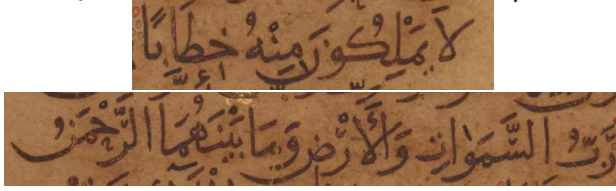 لَا يَمْلِكُونَ مِنْهُ خِطَابًا
رَبُّ السَّمَوَاتِ وَالْأَرْضِ وَمَا بَيْنَهُمَا الرَّحْمَنُ